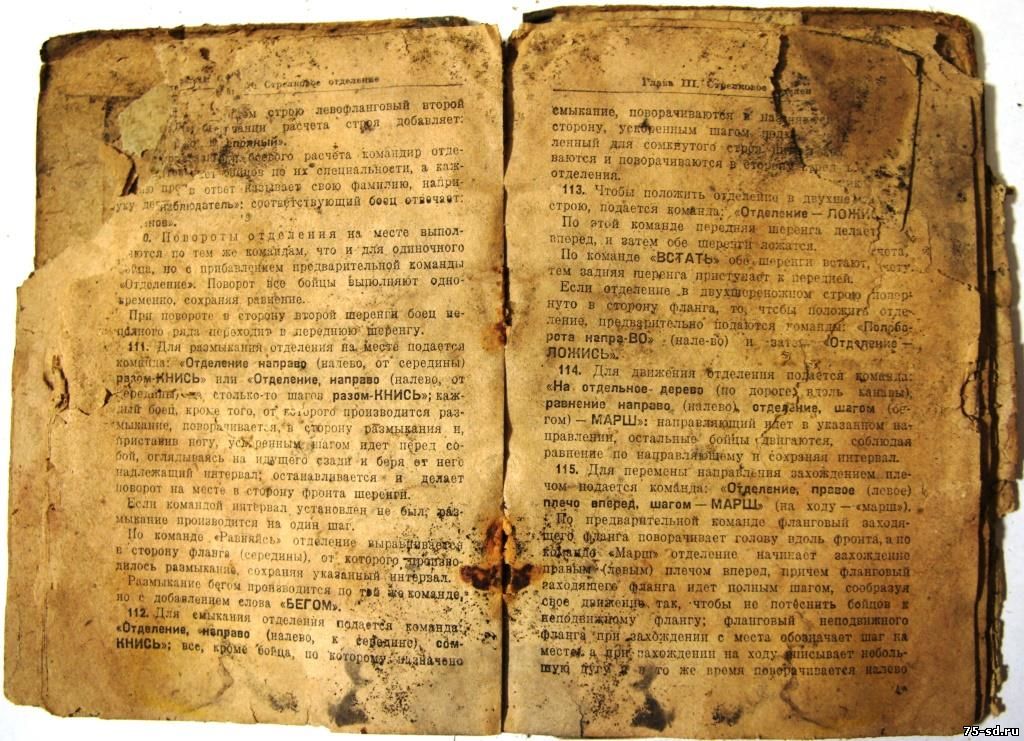 Стрелковое отделение
строю левофланговый второй
расчета строя добавляет:
боевого расчёта командир отде-
бойцов по их специальности, а каж-
в ответ называет свою фамилию, напри-
«наблюдатель»: соответствующий боец отвечает:
Повороты отделения на месте выпол-
по тем же командам, что и для одиночного
но с прибавлением предварительной команды
«Отделение». Поворот все бойцы выполняют одно-
временно, сохраняя равнение.
При повороте в сторону второй шеренги боец не-
полного ряда переходит в переднюю шеренгу.
111. Для размыкания отделения на месте подается
команда: «Отделение направо (налево, от середины)
разом-КНИСЬ» или «Отделение, направо (налево, от
середины), на столько-то шагов разом-КНИСЬ»; каж-
дый боец, кроме того, от которого производится раз-
мыкание, поворачивается в сторону размыкания и,
приставив ногу, ускоренным шагом идет перед со-
бой, оглядываясь на идущего сзади и беря от него
надлежащий интервал; останавливается и делает
поворот на месте в сторону фронта шеренги.
Если командой интервал установлен не был, раз-
мыкание производится на один шаг.
По команде «Равняйсь» отделение выравнивается
в сторону фланга (середины), от которого произво-
дилось размыкание, сохраняя указанный интервал.
Размыкание бегом производится по той же команде,
но с добавлением слова «БЕГОМ».
112. Для смыкания отделения подается команда:
«Отделение, направо (налево, к середине) сом-
КНИСЬ»; все, кроме бойца, по которому назначено
Глава III. Стрелковое
смыкание, поворачиваются в
сторону, ускоренным шагом
ленный для сомкнутого строя
ваются и поворачиваются в сторону
отделения.
113. Чтобы положить отделение в
строю, подается команда: «Отделение — ЛОЖИ
По этой команде передняя шеренга делает
вперед, и затем обе шеренги ложатся.
По команде «ВСТАТЬ» обе шеренги встают,
тем задняя шеренга приступает к передней.
Если отделение в двухшереножном строю повер-
нуто в сторону фланга, то, чтобы положить отде-
ление, предварительно подаются команды: «Полоборота
напра-ВО» (нале-во) и затем «Отделение —
ЛОЖИСЬ».
114. Для движения отделения подается команда:
«На отдельное дерево (по дороге, вдоль канавы),
равнение направо (налево), отделение, шагом (бе-
гом) — МАРШ»: направляющий идет в указанном на-
правлении, остальные бойцы двигаются, соблюдая
равнение по направляющему и сохраняя интервал.
115. Для перемены направления захождением пле-
чом подается команда: «Отделение, правое (левое)
плечо вперед, шагом — МАРШ» (на ходу — «марш»).
По предварительной команде фланговый заходя-
щего фланга поворачивает голову вдоль фронта, а по
команде «Марш» отделение начинает захождение
правым (левым) плечом вперед, причем фланговый
заходящего фланга идет полным шагом, сообразуя
свое движение так, чтобы не потеснить бойцов к
неподвижному флангу; фланговый неподвижного
фланга при захождении с места обозначает шаг на
месте, а при захождении на ходу описывает неболь-
шую дугу и в то же время поворачивается налево
75-sd.ru